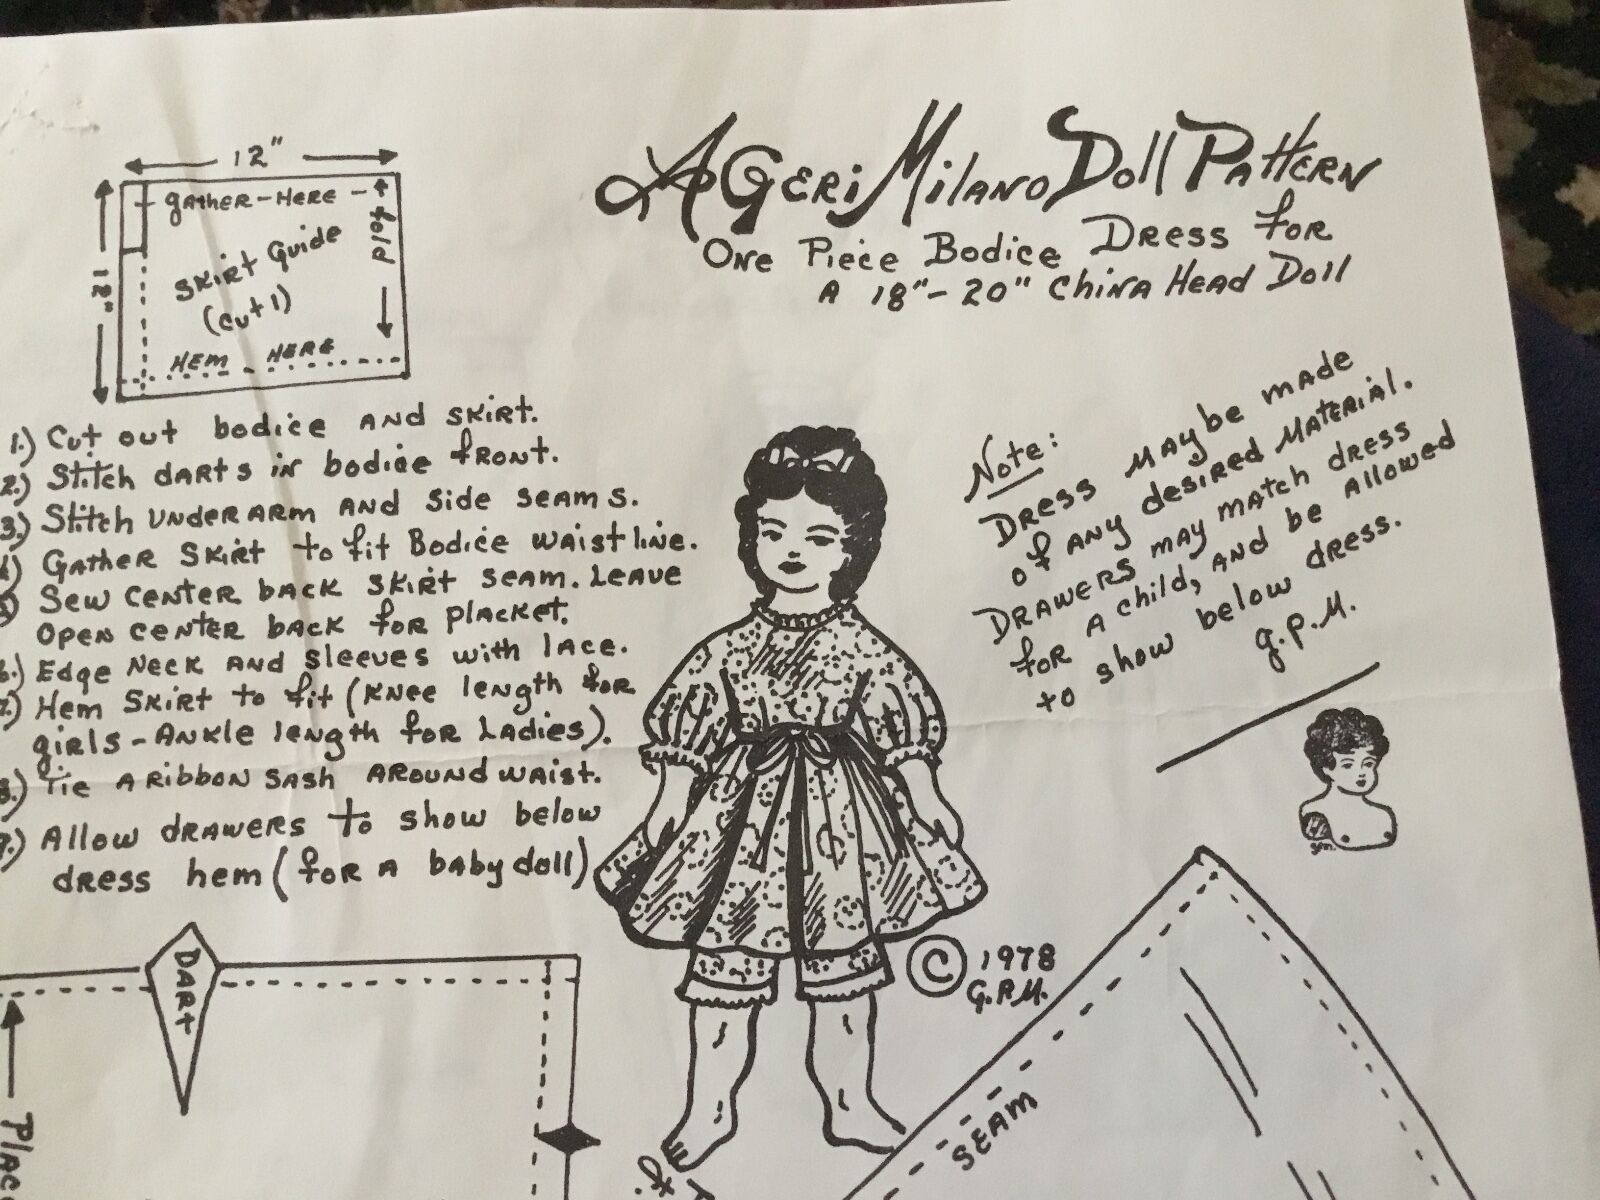 A Geri Milano Doll Pattern
One Piece Bodice Dress for
A 18"-20" China Head Doll
12"
gather-Here
fold
Skirt Guide
(cut 1)
Hem Here
1.) Cut out bodice and skirt.
2.) Stitch darts in bodice front.
3.) Stitch underarm and side seams.
Gather skirt to fit Bodice waistline.
Sew center back skirt seam. Leave
open center back for placket.
6.) Edge neck and sleeves with lace.
7.) Hem skirt to fit (knee length for
girls - Ankle length for Ladies).
8.) Tie a ribbon sash around waist.
9.) Allow drawers to show below
dress hem (for a baby doll)
Note:
Dress may be made
of any desired material.
Drawers may match dress
for a child, and be allowed
to show below dress.
g.p.M.
© 1978
G.P.M.
Dart
Seam